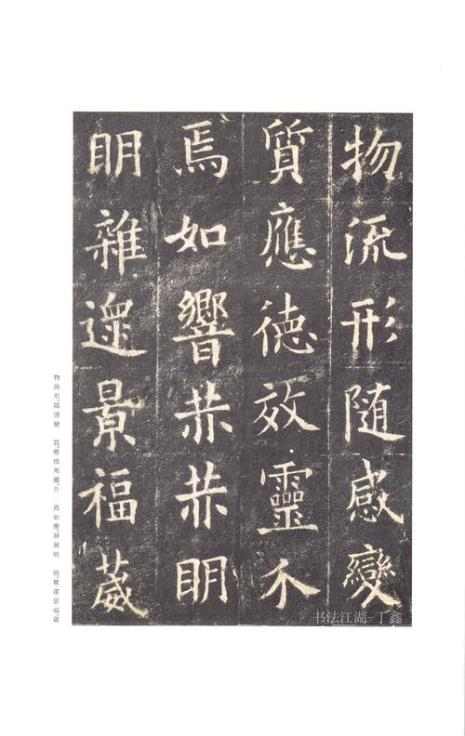 物流形随感變
質應徳效靈介
焉如響赫赫明
明雜遝景福葳
物流形隨感變 質應德效靈介 焉如響赫赫明 明雜遝景福葳
书法江湖-丁鑫